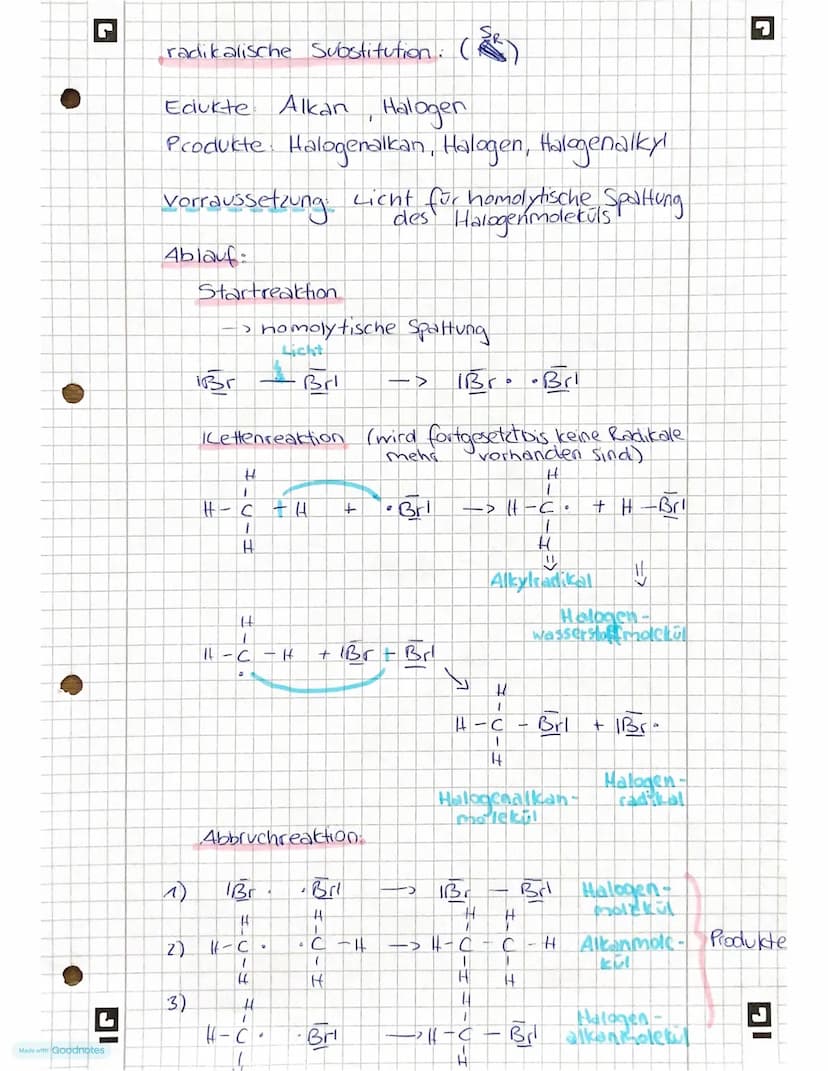 radikalische Substitution: (SR)
Edukte: Alkan, Halogen
Produkte: Halogenalkan, Halogen, Halogenalkyl
Vorraussetzung: Licht für homolytische Spaltung
des Halogenmoleküls
Ablauf:
Startreaktion
-> homolytische Spaltung
Licht
|Br — Br| -> |Br• •Br|
Kettenreaktion (wird fortgesetzt bis keine Radikale
mehr vorhanden sind)
H H
H - C + H + •Br| -> H - C • + H - Br|
H H
Alkylradikal
Halogen-
wasserstoffmolekül
H
H - C - H + |Br + Br|
•
H
H - C - Br| + |Br•
H
Halogenalkan-
molekül
Halogen-
radikal
Abbruchreaktion:
1) |Br • •Br| -> |Br - Br| Halogen-
molekül
H H H H
2) H - C • •C - H -> H - C - C - H Alkanmole-
kül
Produkte
H H H H
3) H H
H - C • •Br| -> H - C - Br| Halogen-
alkanmolekül
H
Made with Goodnotes